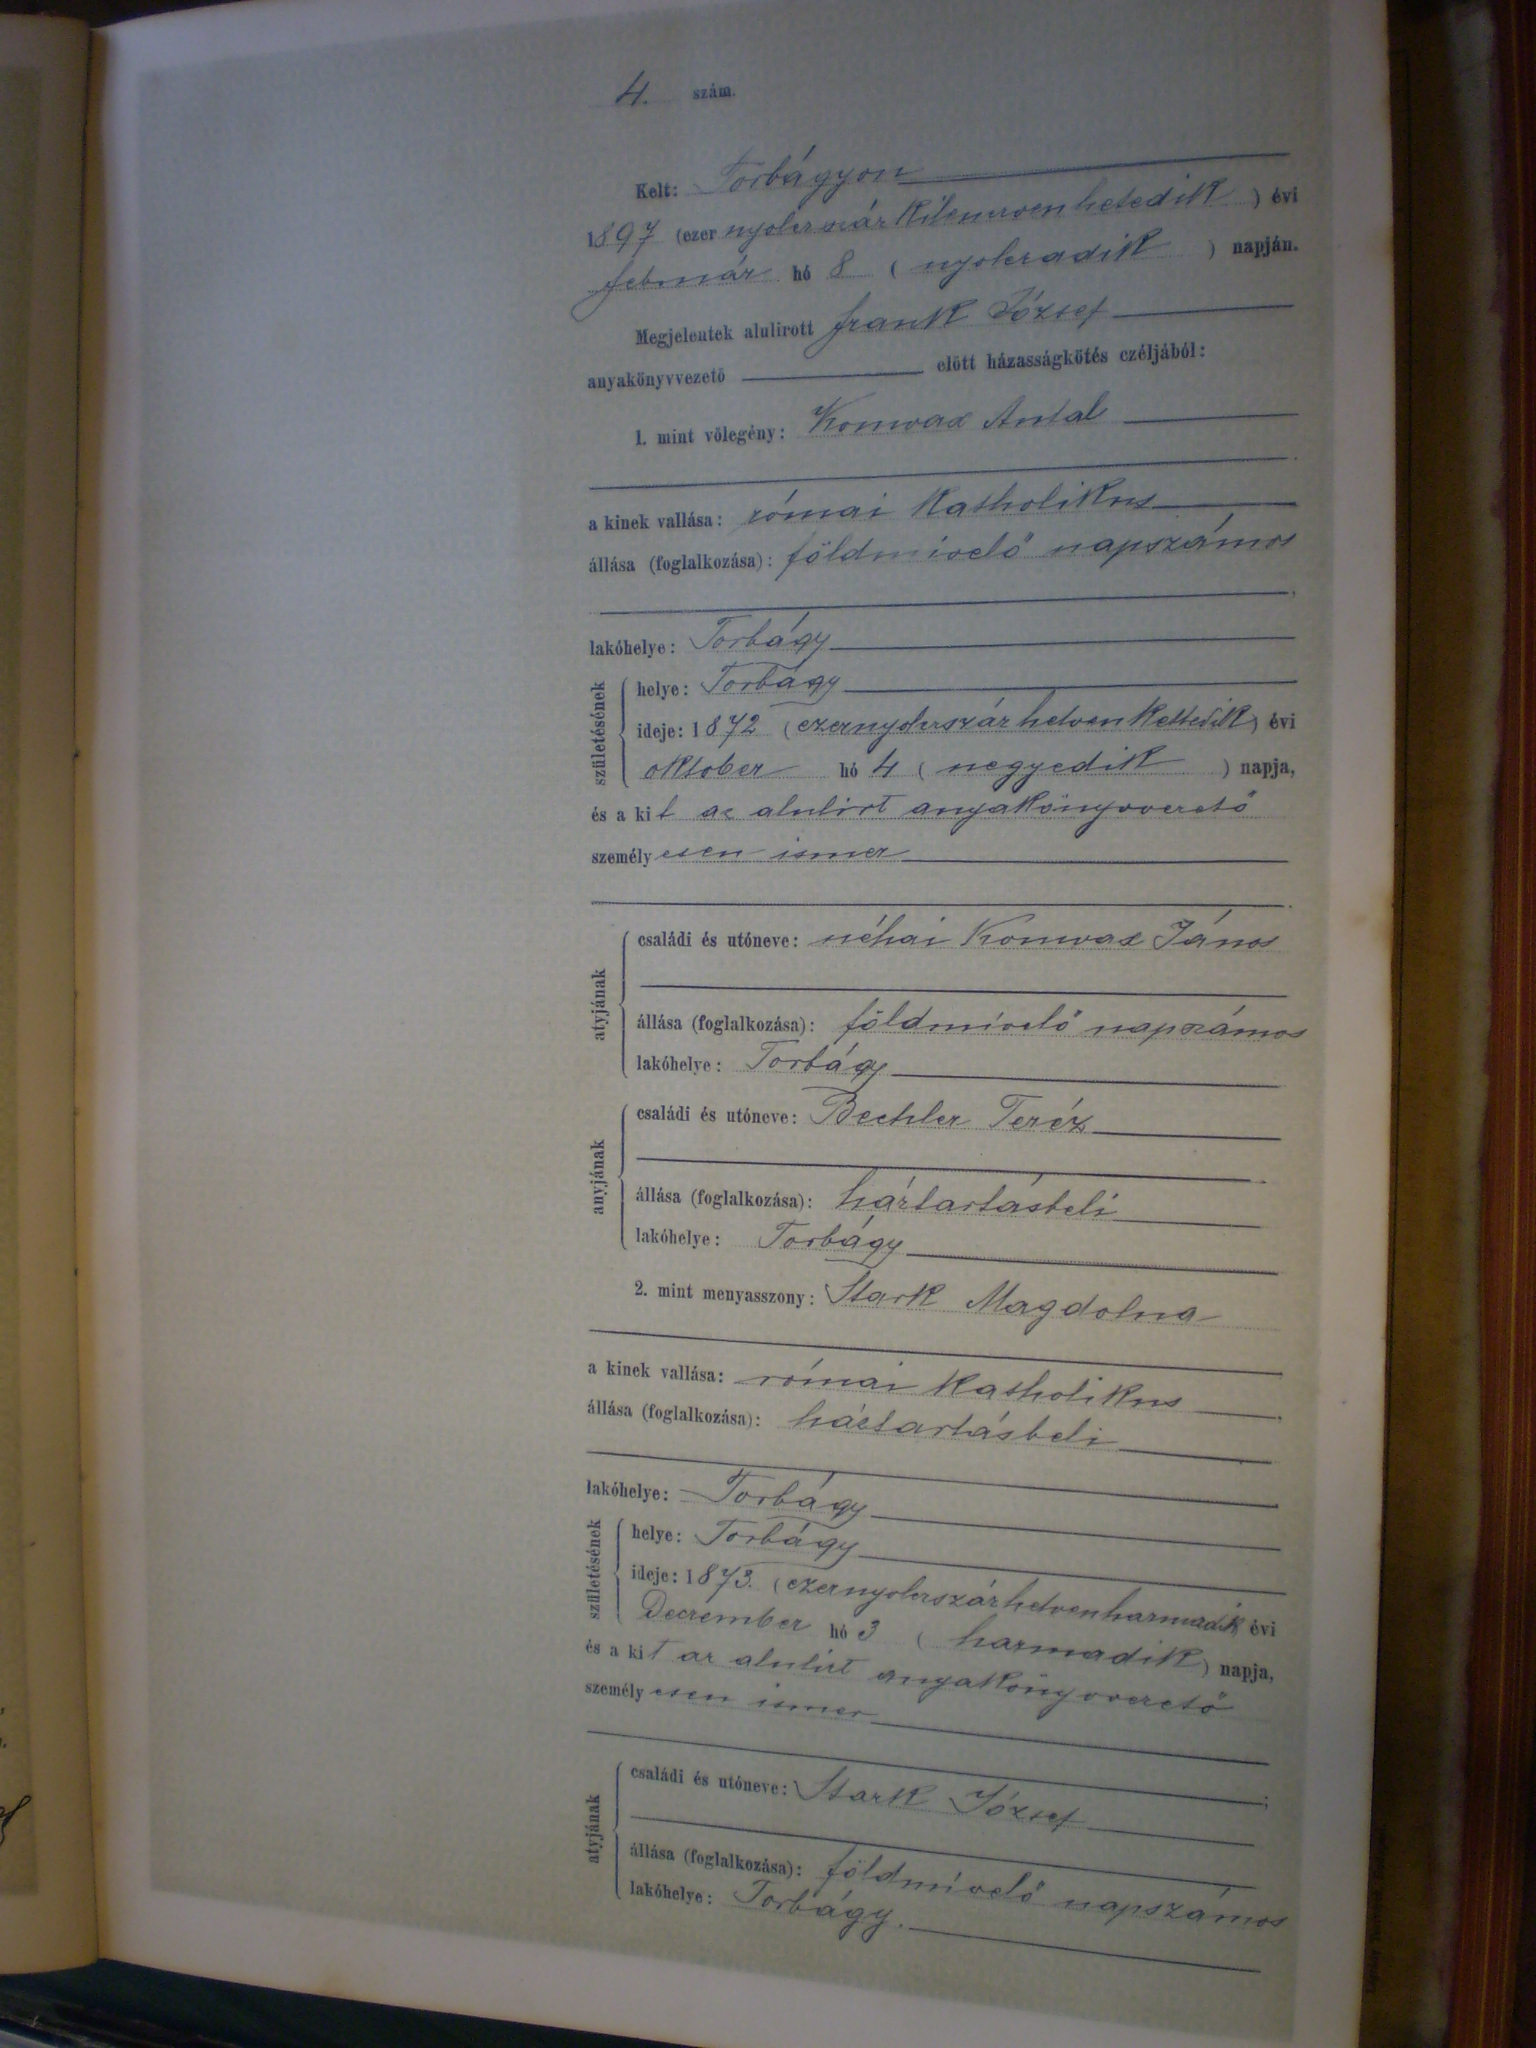 4. szám.
Kelt: Torbágyon
1897 (ezer nyolczszáz kilenczvenhetedik) évi
február hó 8 (nyolczadik) napján.
Megjelentek alulirott Frank József
anyakönyvvezető előtt házasságkötés czéljából:
1. mint vőlegény: Konwax Antal
a kinek vallása: római katholikus
állása (foglalkozása): földmívelő napszámos
lakóhelye: Torbágy
születésének
helye: Torbágy
ideje: 1872 (ezernyolczszázhetvenkettedik) évi
oktober hó 4 (negyedik) napja,
és a kit az alulirt anyakönyvvezető
személyesen ismer
atyjának
családi és utóneve: néhai Konwax János
állása (foglalkozása): földmívelő napszámos
lakóhelye: Torbágy
anyjának
családi és utóneve: Bechler Teréz
állása (foglalkozása): háztartásbeli
lakóhelye: Torbágy
2. mint menyasszony: Stark Magdolna
a kinek vallása: római katholikus
állása (foglalkozása): háztartásbeli
lakóhelye: Torbágy
születésének
helye: Torbágy
ideje: 1873. (ezernyolczszázhetvenharmadik) évi
Deczember hó 3 (harmadik) napja,
és a kit az alulirt anyakönyvvezető
személyesen ismer
atyjának
családi és utóneve: Stark József
állása (foglalkozása): földmívelő napszámos
lakóhelye: Torbágy.